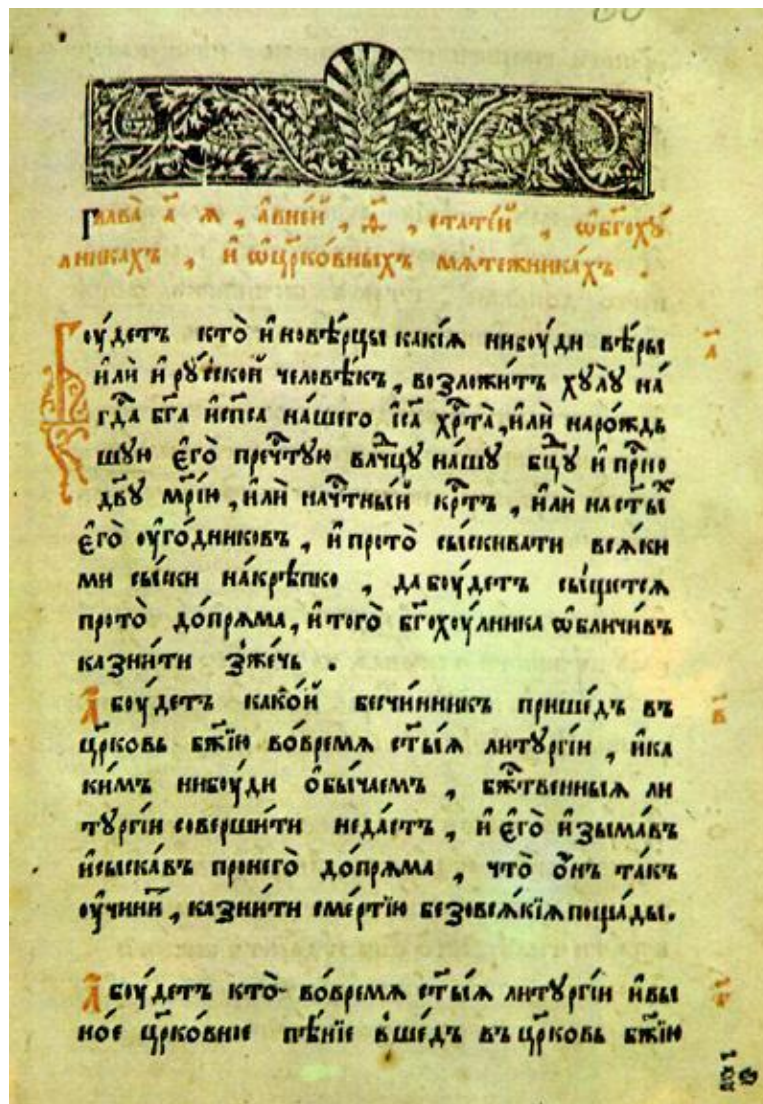 Глава̀ а҃ ѧ , а҆ в̾не́й , ѳ҃ , стате́й , ѡ҆бг҃охꙋ́
лникахъ , и҆ ѡ҆цр҃ко́вныхъ мѧте́жникахъ .
Боу́детъ кто̀ и҆новѣ́рцы какі́ѧ нибоу́ди вѣ́ры
и҆лѝ и҆ рꙋ́сской человѣ́къ , возложи́тъ хꙋлꙋ̀ на
гд҇а бг҃а и҆ сп҃са на́шего і҆с҃а хр҇та̀ , и҆лѝ наро́ждь
шꙋю є҆го̀ преч҇тꙋю влⷣчцꙋ на́шꙋ бцⷣꙋ и҆ пр҇но
дв҃ꙋ мр҃і́ю , и҆лѝ нач҇тны́й кр҇тъ , и҆лѝ на ст҃ы́хъ
є҆го̀ оу҆го́дниковъ , и҆ прото̀ сы́скивати всѧ́ки
ми сы́ски на́крѣпко , да боу́детъ сы́щетсѧ
прото̀ до́прѧма , и҆ того̀ бг҃охоу́лника ѡ҆бличи́въ
казни́ти зже́чь .
А҆ боу́детъ како́й бесчи́нникъ прише́дъ въ
цр҃ковь бж҃їю во́времѧ ст҃ы́ѧ литꙋргі́и , и҆ ка
ки́мъ нибоу́ди ѻ҆бы́чаемъ , бж҇твенныѧ ли
тꙋргі́и соверши́ти неда́стъ , и҆ є҆го̀ и҆зыма́въ
и҆ сыска́въ пронего̀ до́прѧма , что̀ ѻ҆нъ та́къ
оу҆чини́т , казни́ти сме́ртїю безовсѧ́кїѧ поща́ды .
А҆ боу́детъ кто̀ во́времѧ ст҃ы́ѧ литꙋргі́и и҆ вы
но́е цр҃ко́вное пѣ́нїе вше́дъ въ цр҃ковь бж҃їю
а҃
в҃
г҃